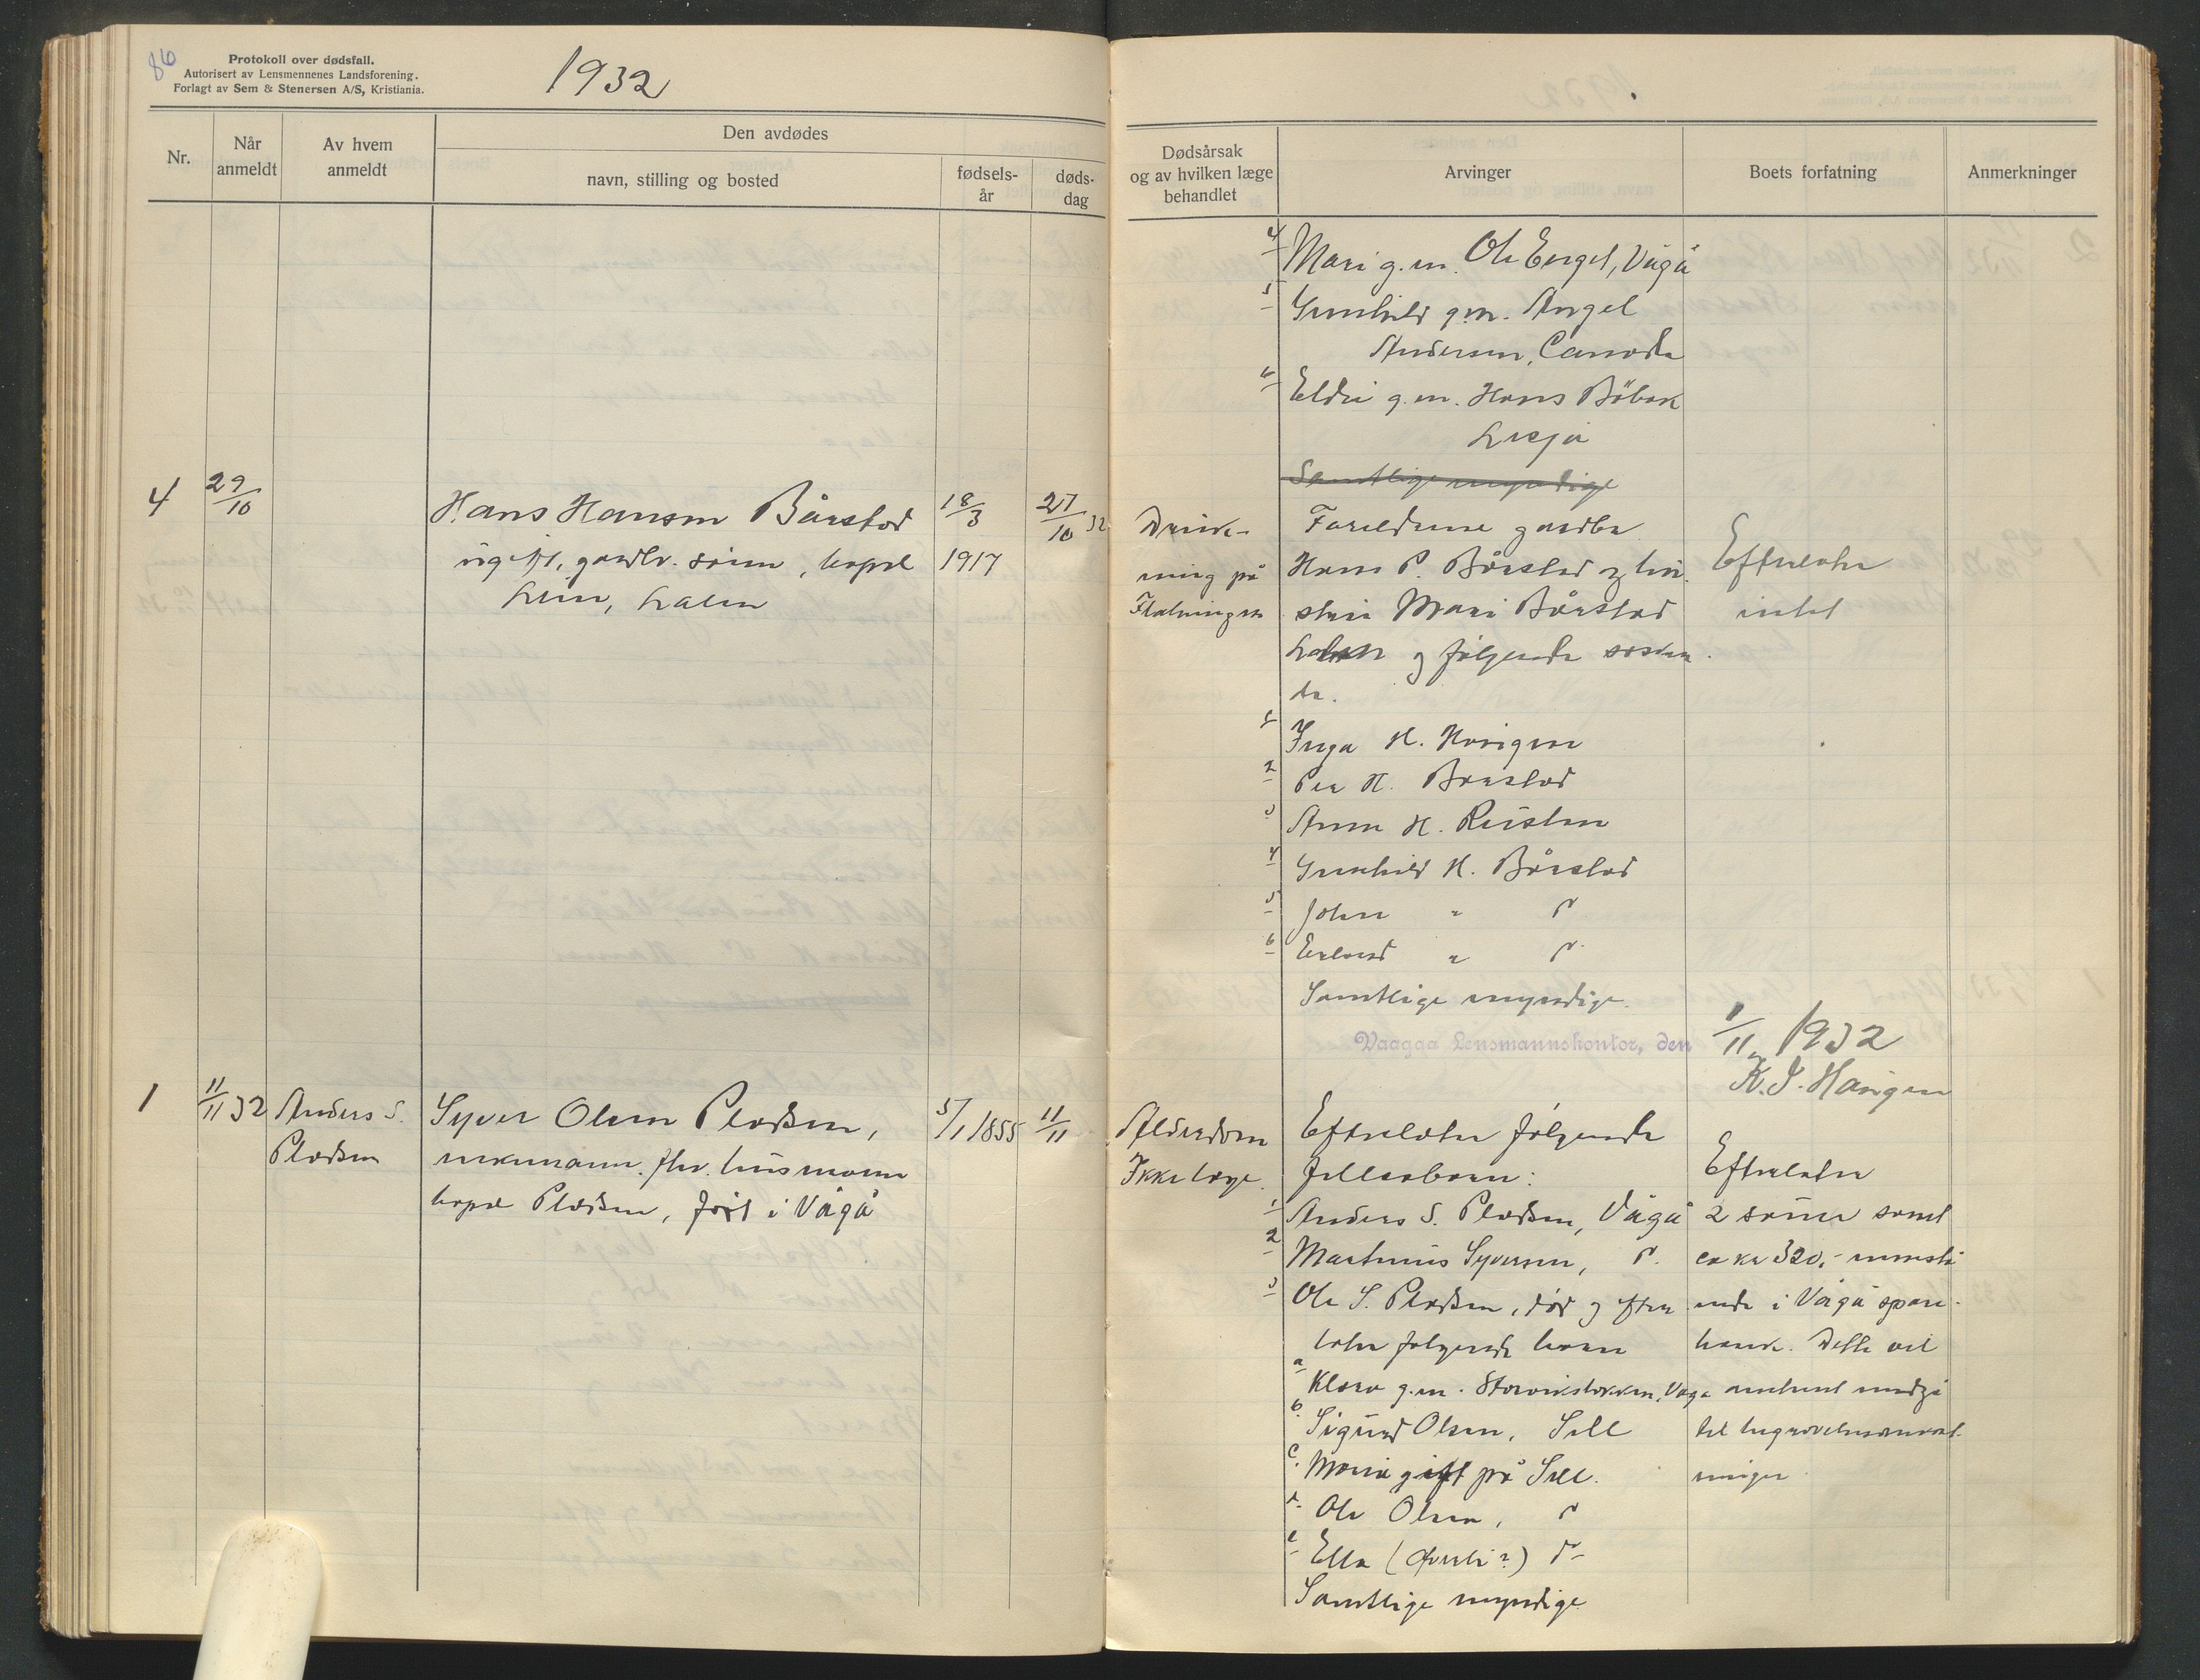 86
Protokoll over dødsfall.
Autorisert av Lensmennenes Landsforening.
Forlagt av Sem & Stenersen A/S, Kristiania.
1932
Nr.
Når anmeldt
Av hvem anmeldt
Den avdødes
navn, stilling og bosted
fødsels-år
døds-dag
Dødsårsak og av hvilken læge behandlet
Arvinger
Boets forfatning
Anmerkninger
4 Mari g.m. Ole Enget, Vågå
5 Gunhild g.m. Angel
Andersen, Canada
6 Eldri g.m. Hans
Lesja
Samtlige myndige
4 29/10 Hans Hansen Bårstad 18/3 27/10 32
ugift, gardbr. sønn, bopel 1917
Lien, Lalm
Druk-
ning på
Foreldrene gardbr.
Hans P. Bårstad og hu-
stru Mari Bårstad
Lalm og følgende sösken
de.
1 Inga H. Havigen
2 Per H. Bårstad
3 Anna H. Rusten
4 Gunhild H. Bårstad
5 John " "
6 Erland " "
Samtlige myndige.
Efterlater
intet
Vaagaa Lensmannskontor, den 1/11 1932
K. S. Havigen
1 11/11 32 Anders S. Syver Olsen Pladsen, 5/1 1855 11/11
Pladsen
fhv. husmann
bopel Pladsen, i Vågå
Alderdom
Ikke læge.
Efterlater følgende
fellesbarn:
1 Anders S. Pladsen, Vågå
2 Martinus Syversen, "
3 Ole S. Pladsen, död og efter
later følgende barn
a Klara g.m. Storvikstokken, Vågå
b. Sigurd Olsen, Sell
c. Maria gift på Sell.
d. Ole Olsen, "
e Ella ( ) "
Samtlige myndige
Efterlater
2 samt
ca kr 320,- innestå
ende i Vågå spare-
bank. Dette vil
omtrent medgå
til begravelsesomkost
ninger